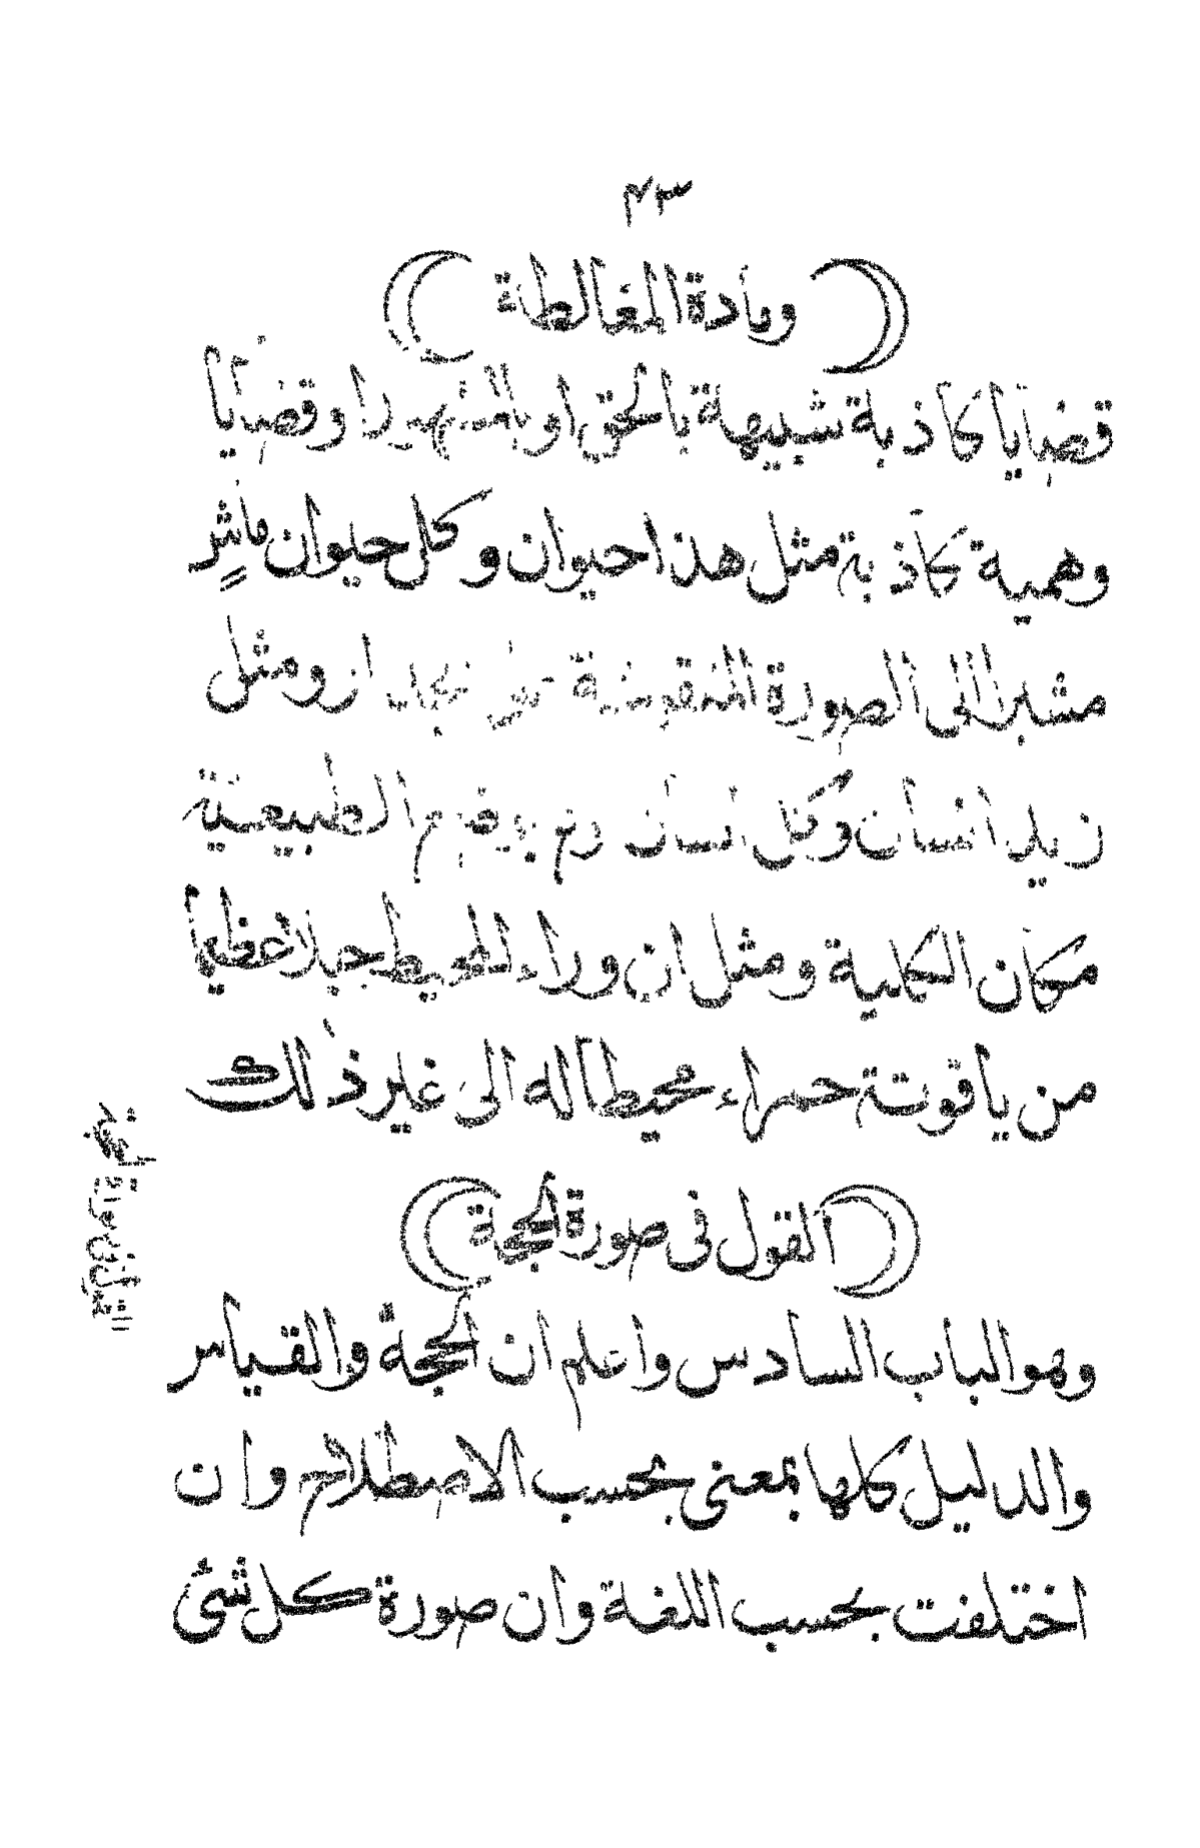 ٤٣
(ومادة المغالطة)
قضايا كاذبة شبيهة بالحق او بالمشهورا وقضايا
وهمية كاذبة مثل هذا حيوان وكل حيوان ماشٍ
مشيرا الى الصورة المنقوشة جدار ومثل
زيد انسان وكل انسان الطبيعية
مكان الكلية ومثل ان وراء المحيط جبلا عظيما
من ياقوتة حمراء محيطا له الى غير ذلك
(القول فى صورة الحجة)
وهو الباب السادس واعلم ان الحجة والقياس
والدليل كلها بمعنى بحسب الاصطلاح وان
اختلفت بحسب اللغة وان صورة كل شئ
القول فى صورة الحجة